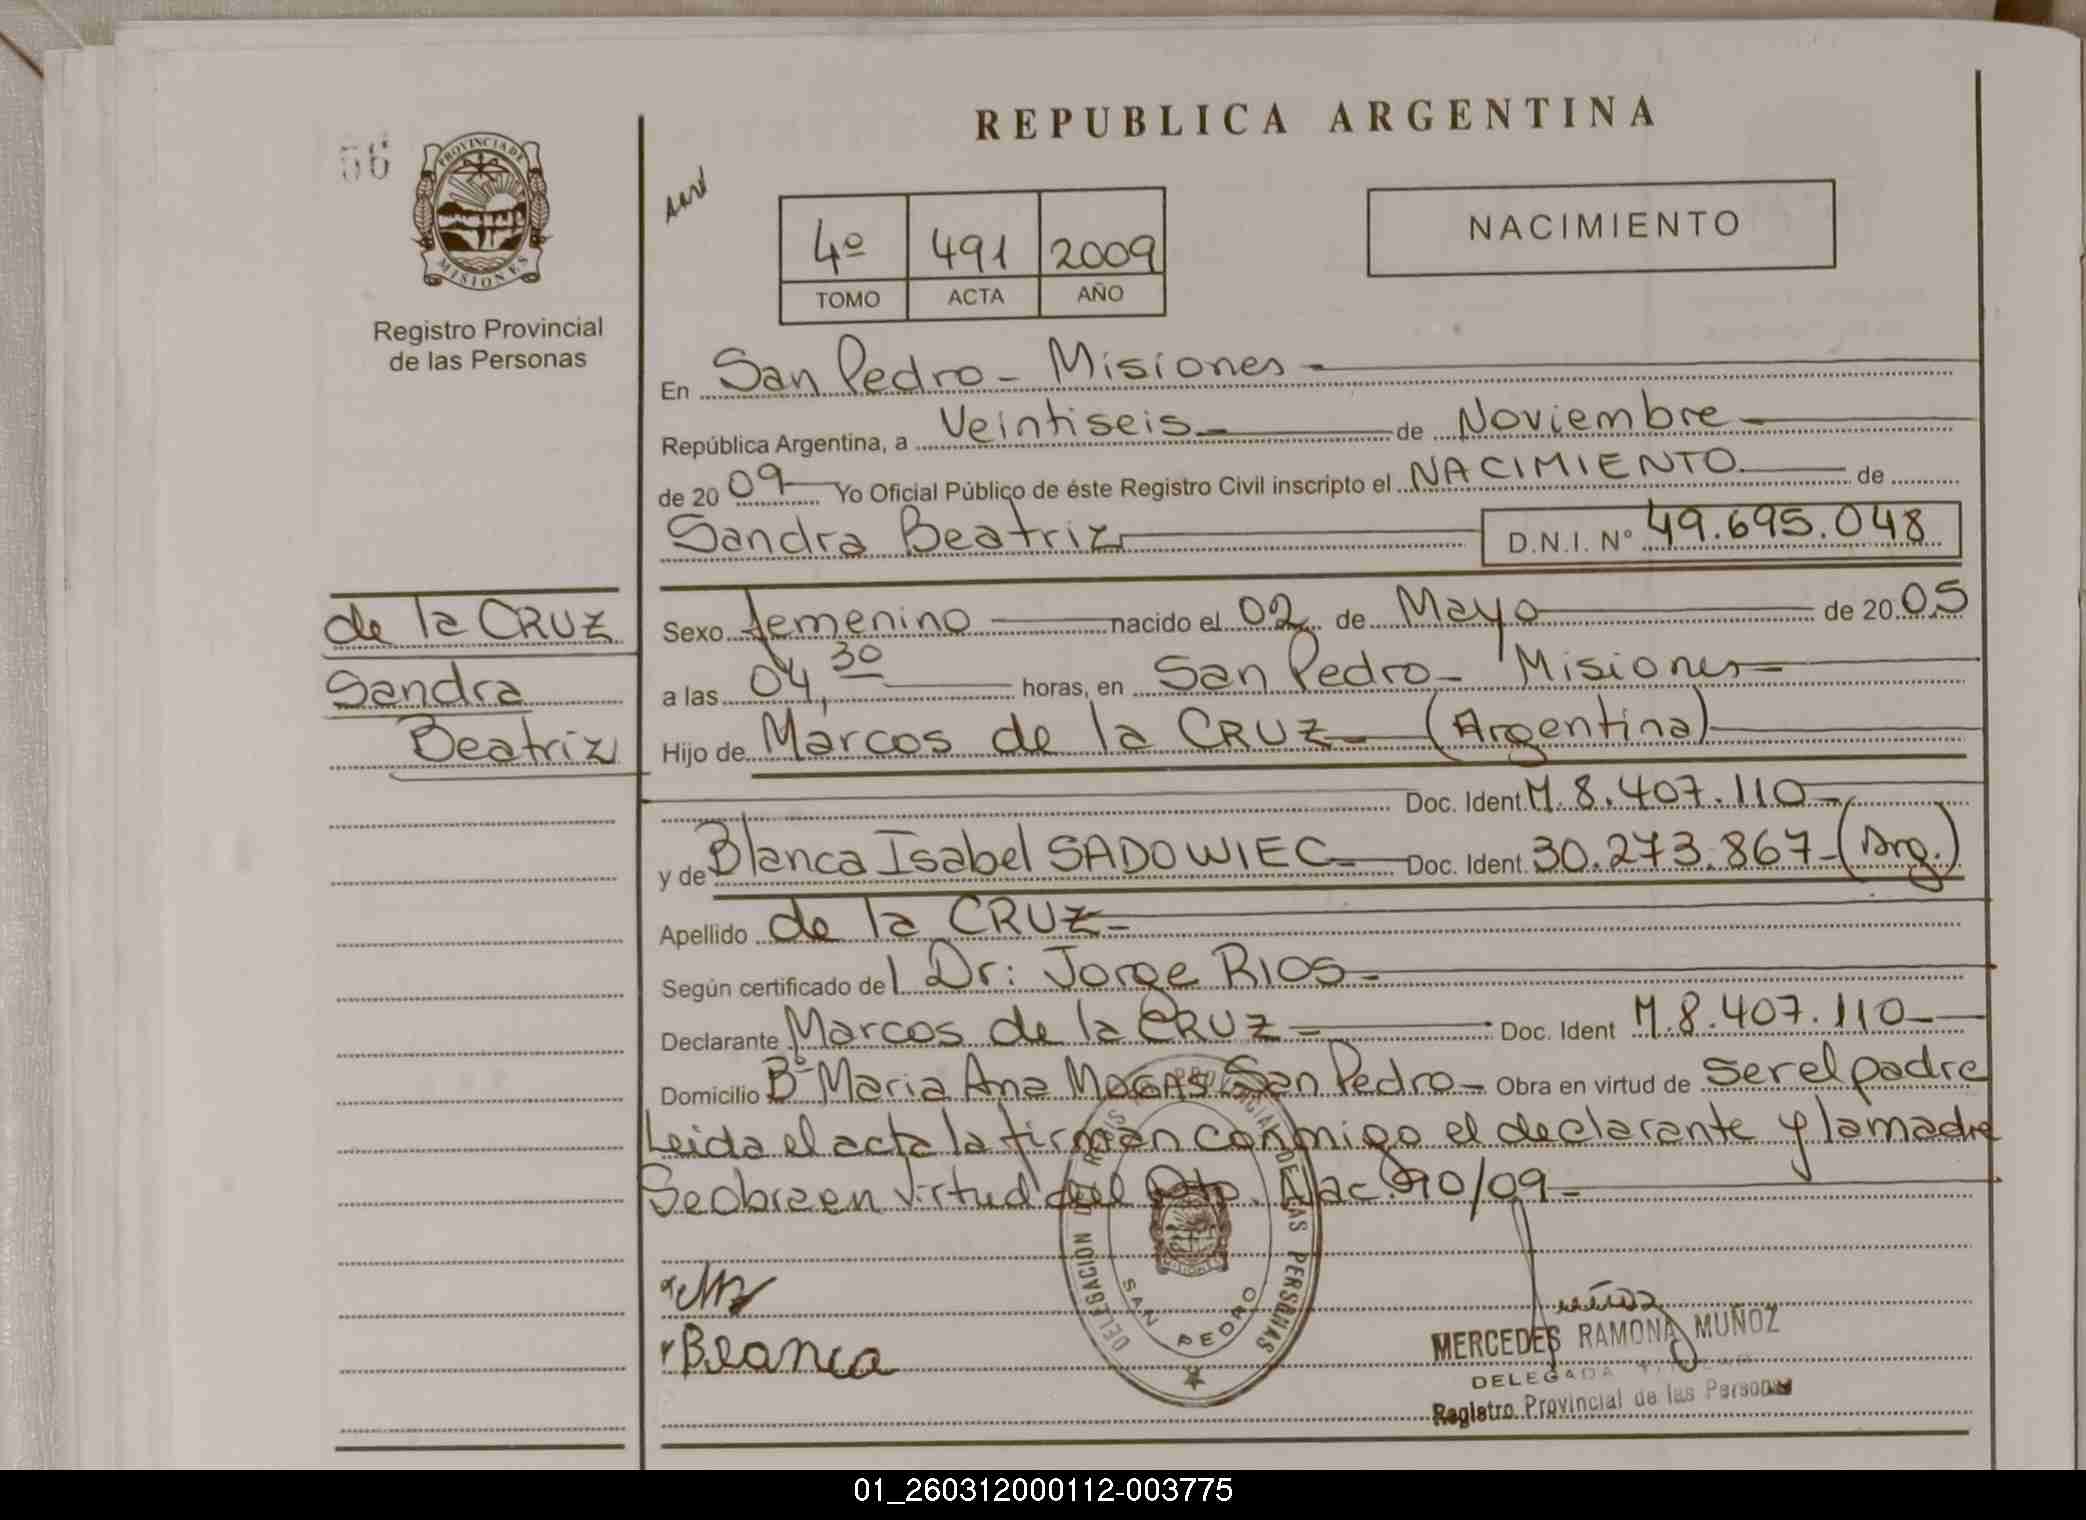 REPUBLICA ARGENTINA
56
PROVINCIA DE
MISIONES
Registro Provincial
de las Personas
4º 491 2009
TOMO ACTA AÑO
NACIMIENTO
En San Pedro - Misiones
República Argentina, a Veintiseis de Noviembre
de 2009 Yo Oficial Público de éste Registro Civil inscripto el NACIMIENTO de
Sandra Beatriz D.N.I. Nº 49.695.048
de la CRUZ
Sandra
Beatriz
Sexo femenino nacido el 02 de Mayo de 2005
a las 04,30 horas, en San Pedro - Misiones
Hijo de Marcos de la CRUZ - (Argentina)
Doc. Ident. M. 8.407.110
y de Blanca Isabel SADOWIEC Doc. Ident. 30.273.867 - (Arg.)
Apellido de la CRUZ
Según certificado del Dr: Jorge RIOS
Declarante Marcos de la CRUZ Doc. Ident M.8.407.110
Domicilio Bº Maria Ana MOGAS San Pedro - Obra en virtud de ser el padre
Leida el acta la firman conmigo el declarante y la madre
Se obra en virtud del Dto. Nac. 90/09
DELEGACION DEL REGISTRO PROVINCIAL DE LAS PERSONAS
SAN PEDRO
MISIONES
Blanca
Muñoz
MERCEDES RAMONA MUÑOZ
DELEGADA TITULAR
Registro Provincial de las Personas
01_260312000112-003775